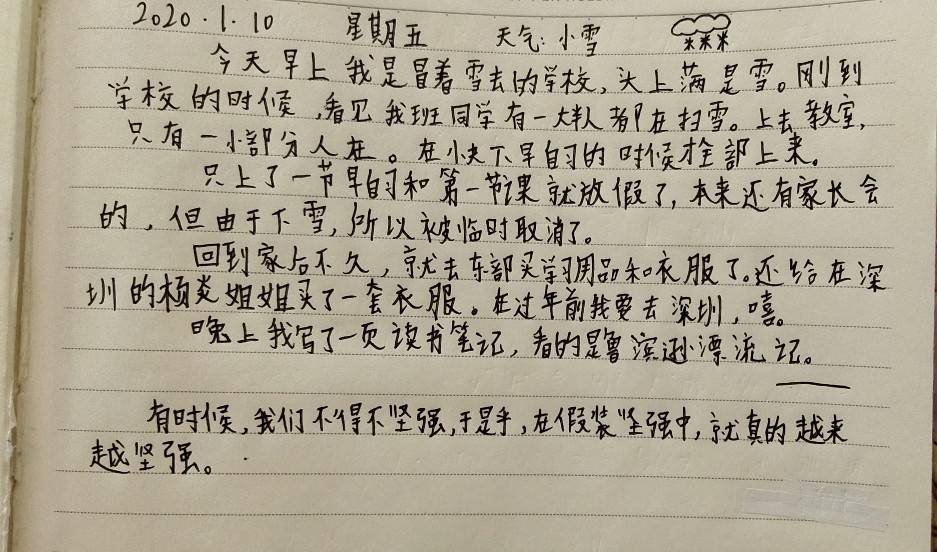 2020.1.10 星期五 天气:小雪
今天早上我是冒着雪去的学校,头上满是雪。刚到
学校的时候,看见我班同学有一大群人都在扫雪。上去教室,
只有一小部分人在。在快下早自习的时候才全部上来。
只上了一节早自习和第一节课就放假了,本来还有家长会
的,但由于下雪,所以被临时取消了。
回到家后不久,就去东部买学习用品和衣服了。还给在深
圳的杨炎姐姐买了一套衣服。在过年前我要去深圳,嘻。
晚上我写了一页读书笔记,看的是鲁滨逊漂流记。
有时候,我们不得不坚强,于是乎,在假装坚强中,就真的越来
越坚强。